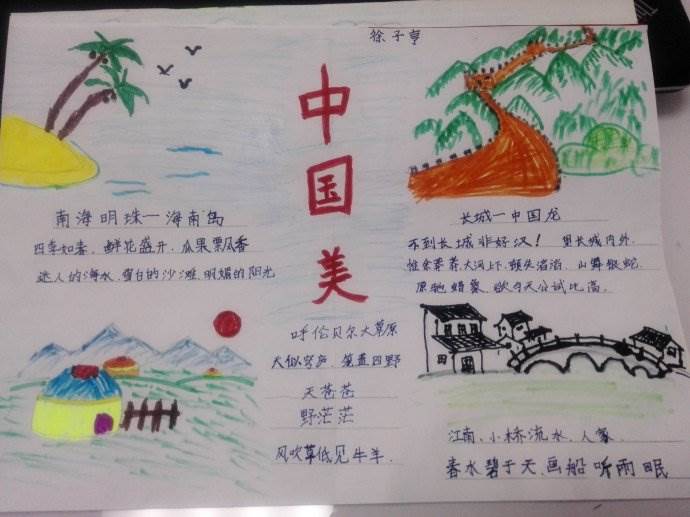 徐子亨
中国美
南海明珠一海南岛
四季如春、鲜花盛开、瓜果飘香
迷人的海水、雪白的沙滩、明媚的阳光
长城一中国龙
不到长城非好汉！望长城内外,
惟余莽莽大河上下,顿失滔滔、山舞银蛇
原驰蜡象、欲与天公试比高、
呼伦贝尔大草原
天似穹庐、笼盖四野
天苍苍
野茫茫
风吹草低见牛羊、
江南、小桥流水、人家、
春水碧于天、画船听雨眠